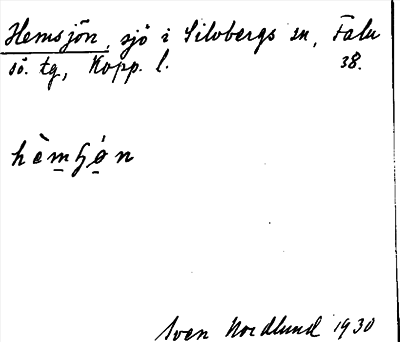 Hemsjön, sjö i Silvbergs sn, Falu
sö. tg, Kopp. l. 38.
hèmʃón
Sven Nordlund 1930